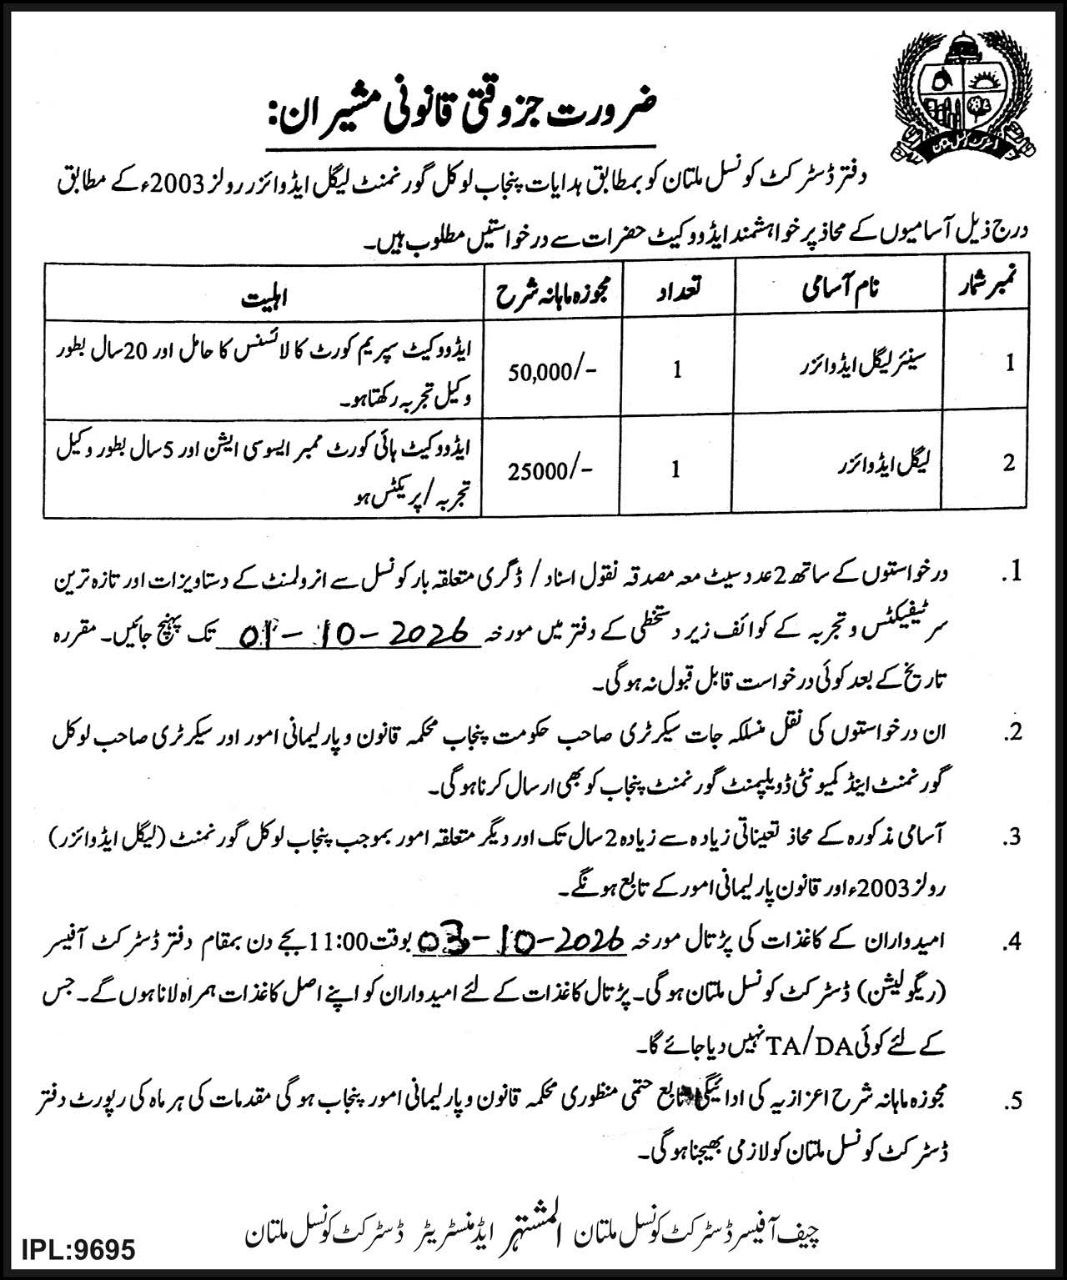 ڈسٹرکٹ کونسل ملتان
ضرورت جزوقتی قانونی مشیران:
دفتر ڈسٹرکٹ کونسل ملتان کو بمطابق ہدایات پنجاب لوکل گورنمنٹ لیگل ایڈوائزر رولز 2003ء کے مطابق
درج ذیل آسامیوں کے محاذ پر خواہشمند ایڈووکیٹ حضرات سے درخواستیں مطلوب ہیں۔
نمبر شمار نام آسامی تعداد مجوزہ ماہانہ شرح اہلیت
1 سینئر لیگل ایڈوائزر 1 50,000/- ایڈووکیٹ سپریم کورٹ کا لائسنس کا حامل اور 20 سال بطور
وکیل تجربہ رکھتا ہو۔
2 لیگل ایڈوائزر 1 25000/- ایڈووکیٹ ہائی کورٹ ممبر ایسوسی ایشن اور 5 سال بطور وکیل
تجربہ/پریکٹس ہو
1. درخواستوں کے ساتھ 2 عدد سیٹ معہ مصدقہ نقول اسناد / ڈگری متعلقہ بار کونسل سے انرولمنٹ کے دستاویزات اور تازہ ترین
سرٹیفیکٹس و تجربہ کے کوائف زیر دستخطی کے دفتر میں مورخہ 01-10-2026 تک پہنچ جائیں۔ مقررہ
تاریخ کے بعد کوئی درخواست قابل قبول نہ ہوگی۔
2. ان درخواستوں کی نقل منسلکہ جات سیکرٹری صاحب حکومت پنجاب محکمہ قانون و پارلیمانی امور اور سیکرٹری صاحب لوکل
گورنمنٹ اینڈ کمیونٹی ڈویلپمنٹ گورنمنٹ پنجاب کو بھی ارسال کرنا ہوگی۔
3. آسامی مذکورہ کے محاذ تعیناتی زیادہ سے زیادہ 2 سال تک اور دیگر متعلقہ امور بموجب پنجاب لوکل گورنمنٹ (لیگل ایڈوائزر)
رولز 2003ء اور قانون پارلیمانی امور کے تابع ہونگے۔
4. امیدواران کے کاغذات کی پڑتال مورخہ 03-10-2026 بوقت 11:00 بجے دن بمقام دفتر ڈسٹرکٹ آفیسر
(ریگولیشن) ڈسٹرکٹ کونسل ملتان ہوگی۔ پڑتال کاغذات کے لئے امیدواران کو اپنے اصل کاغذات ہمراہ لانا ہوں گے۔ جس
کے لئے کوئی TA/DA نہیں دیا جائے گا۔
5. مجوزہ ماہانہ شرح اعزازیہ کی ادائیگی تابع حتمی منظوری محکمہ قانون و پارلیمانی امور پنجاب ہوگی مقدمات کی ہر ماہ کی رپورٹ دفتر
ڈسٹرکٹ کونسل ملتان کو لازمی بھیجنا ہوگی۔
چیف آفیسر ڈسٹرکٹ کونسل ملتان المشتہر ایڈمنسٹریٹر ڈسٹرکٹ کونسل ملتان
IPL:9695